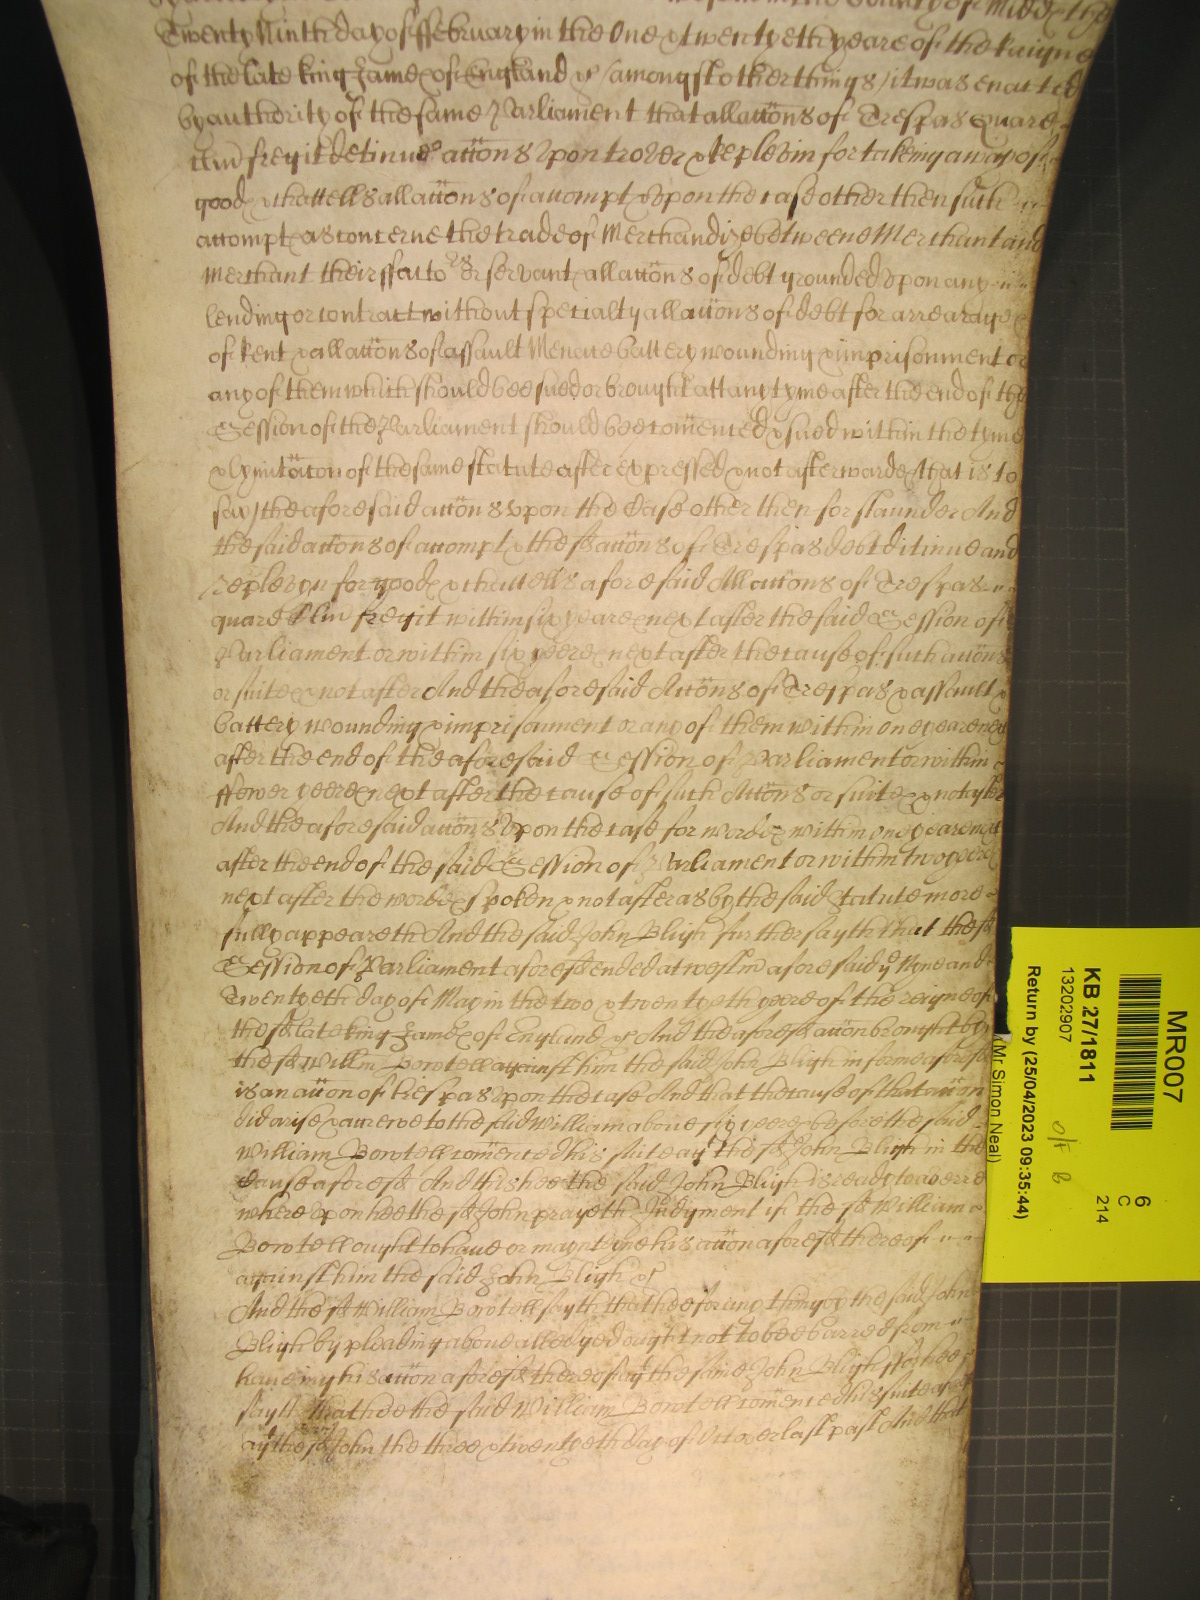 Midd the
Twenty Ninth day of ffebruary in the One & twentyeth yeare of the Raigne
of the late King James of England &c (amongst other things) it was enacted
by authority of the same Parliament that all accons of Trespas Quare
clm fregit detinue accons upon trover & Replevin for takeing away of
goods & chattells all accons of accompt & upon the case other then such
accompts as concerne the trade of Merchandize betweene Merchant and
Merchant their ffactors or servants all accons of debt grounded upon any
lending or contract without specialty all accons of debt for arrearages
of Rent & all accons of assault Menace battery wounding & imprisonment or
any of them which should bee sued or brought att any tyme after the end of the
Session of the Parliament should bee comenced & sued within the tyme
& lymitacon of the same statute after expressed & not afterwards that is to
say) the aforesaid accons upon the Case other then for slaunder And
the said accons of accompt & the sd accons of Trespas debt ditinue and
replevyn for goods & chattells aforesaid All accons of Trespas
quare Clm fregit within six yeares next after the said Session of
Parliament or within six yeeres next after the cause of such accons
or suites & not after And the aforesaid Accons of Trespas & assault &
battery wounding & imprisonment or any of them within one yeare next
after the end of the aforesaid Session of Parliament or within
ffower yeeres next after the cause of such Accons or suites & not after
And the aforesaid accons Upon the case for words within one yeare next
after the end of the said Session of Parliament or within two yeeres
next after the words spoken & not after as by the said Statute more
fully appeareth And the said John Bligh further sayth that the sd
Session of Parliament aforesd ended at westm aforesaid ye Nyne and
Twentyeth day of May in the two & twentyeth yeere of the reigne of
the sd late King James of England &c And the aforesd accon brought by
the sd Willm Bowtell against him the said John Bligh in forme aforesd
is an accon of trespas upon the case And that the cause of that accon
did arise & accrewe to the said William above six yeeres before the said
William Bowtell comenced his suite agt the sd John Bligh in the
Cause aforesd And this hee the said John Bligh is ready to averre
whereupon hee the sd John prayeth Judgment if the sd William
Bowtell ought to have or mayntyne his accon aforesd thereof
against him the said John Bligh &c
And the sd William Bowtell sayth that hee for any thing by the said John
Bligh by pleading above alledged ought not to bee barred from
haveing his accon aforesd thereof agt the same John Bligh ffor hee
sayth that hee the said William Bowtell comenced his suite aforesd
agt the sd John the three & twentyeth day of October last past And that
MR007
KB 27/1811
13202907
Return by (25/04/2023 09:35:44)
(Mr Simon Neal)
6
C
214